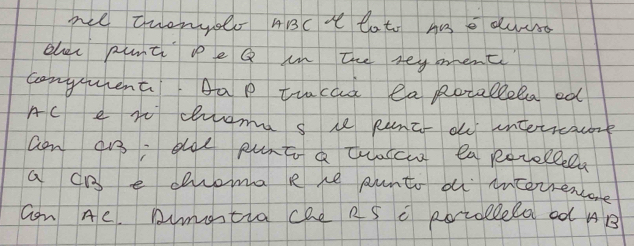 nel triangolo ABC il lato AB è diviso
dai punti P e Q in tre segmenti
congruenti. Da P traccia la parallela ad
AC e si chiama S il punto di intersezione
con CB; dal punto Q traccia la parallela
a CB e chiama R il punto di intersezione
con AC. Dimostra che RS è parallela ad AB